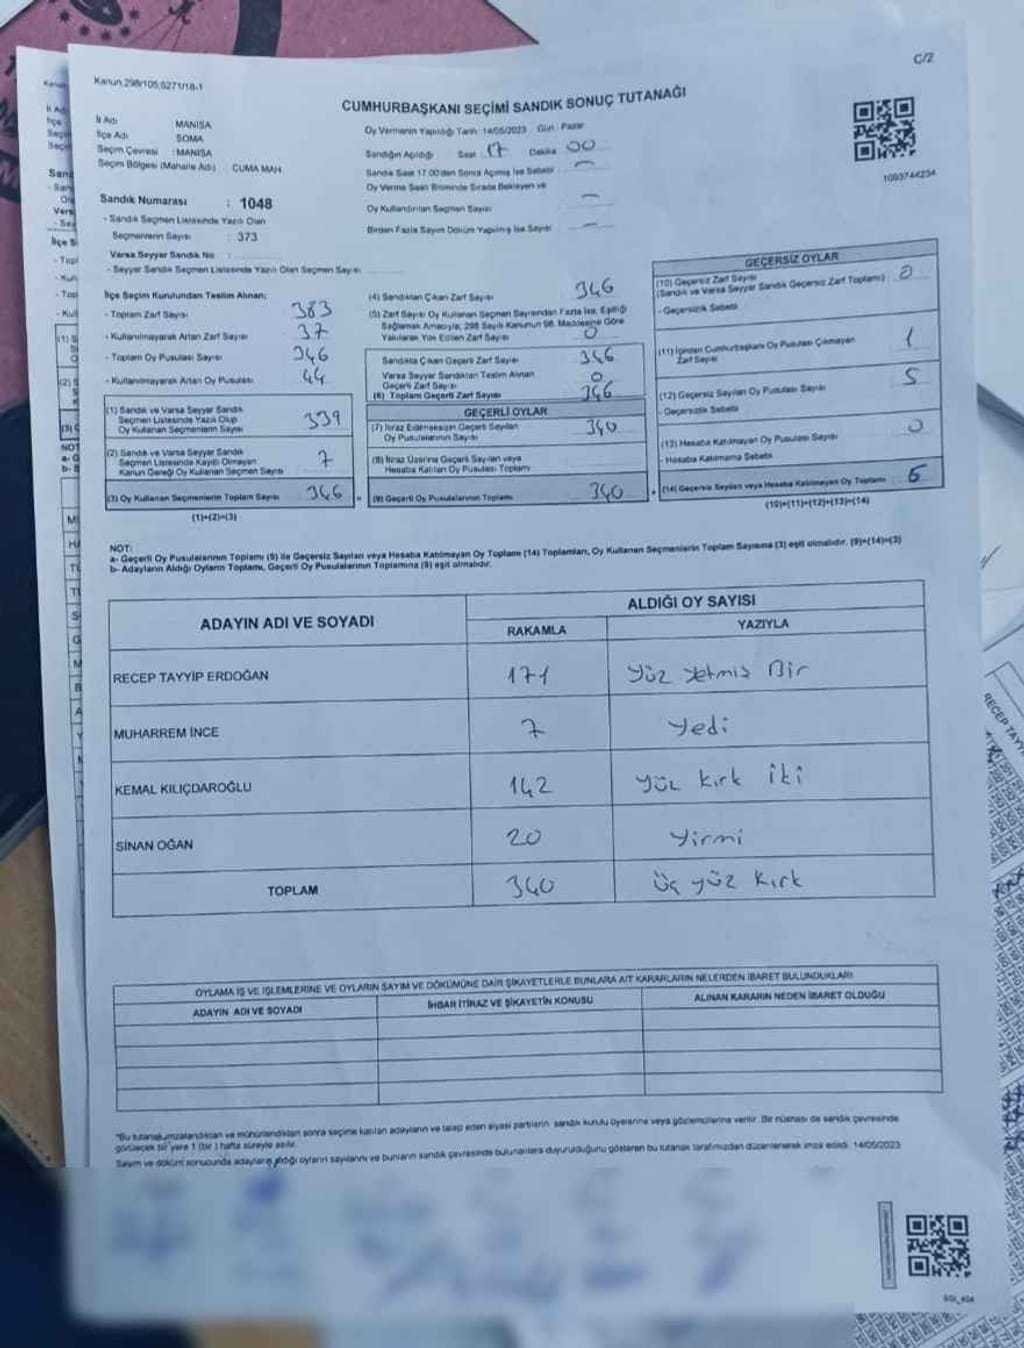 C/2
Kanun 298/105,6271/18-1
CUMHURBAŞKANI SEÇİMİ SANDIK SONUÇ TUTANAĞI
İl Adı MANİSA
İlçe Adı SOMA
Seçim Çevresi : MANİSA
Seçim Bölgesi (Mahalle Adı) : CUMA MAH
Sandık Numarası : 1048
- Sandık Seçmen Listesinde Yazılı Olan
Seçmenlerin Sayısı : 373
Varsa Seyyar Sandık No :
- Seyyar Sandık Seçmen Listesinde Yazılı Olan Seçmen Sayısı
Oy Vermenin Yapıldığı Tarih: 14/05/2023 Gün: Pazar
Sandığın Açıldığı Saat : 17 Dakika 00
Sandık Saat 17.00'den Sonra Açılmış İse Sebebi : –
Oy Verme Saati Bitiminde Sırada Bekleyen ve
Oy Kullandırılan Seçmen Sayısı –
Birden Fazla Sayım Döküm Yapılmış İse Sayısı –
1093744234
İlçe Seçim Kurulundan Teslim Alınan;
- Toplam Zarf Sayısı : 383
- Kullanılmayarak Artan Zarf Sayısı : 37
- Toplam Oy Pusulası Sayısı : 346
- Kullanılmayarak Artan Oy Pusulası : 44
(1) Sandık ve Varsa Seyyar Sandık
Seçmen Listesinde Yazılı Olup
Oy Kullanan Seçmenlerin Sayısı 339
(2) Sandık ve Varsa Seyyar Sandık
Seçmen Listesinde Kayıtlı Olmayan
Kanun Gereği Oy Kullanan Seçmen Sayısı 7
(3) Oy Kullanan Seçmenlerin Toplam Sayısı 346
(1)+(2)=(3)
(4) Sandıktan Çıkan Zarf Sayısı 346
(5) Zarf Sayısı Oy Kullanan Seçmen Sayısından Fazla İse, Eşitliği
Sağlamak Amacıyla, 298 Sayılı Kanunun 98. Maddesine Göre
Yakılarak Yok Edilen Zarf Sayısı 0
Sandıkta Çıkan Geçerli Zarf Sayısı 346
Varsa Seyyar Sandıktan Teslim Alınan
Geçerli Zarf Sayısı 0
(6) Toplam Geçerli Zarf Sayısı 346
GEÇERLİ OYLAR
(7) İtiraz Edilmeksizin Geçerli Sayılan
Oy Pusulalarının Sayısı 340
(8) İtiraz Üzerine Geçerli Sayılan veya
Hesaba Katılan Oy Pusulası Toplamı
(9) Geçerli Oy Pusulalarının Toplamı 340
GEÇERSİZ OYLAR
(10) Geçersiz Zarf Sayısı
(Sandık ve Varsa Seyyar Sandık Geçersiz Zarf Toplamı) : 0
- Geçersizlik Sebebi
(11) İçinden Cumhurbaşkanı Oy Pusulası Çıkmayan
Zarf Sayısı 1
(12) Geçersiz Sayılan Oy Pusulası Sayısı 5
- Geçersizlik Sebebi
(13) Hesaba Katılmayan Oy Pusulası Sayısı 0
- Hesaba Katılmama Sebebi
(14) Geçersiz Sayılan veya Hesaba Katılmayan Oy Toplamı 6
(10)+(11)+(12)+(13)=(14)
NOT:
a- Geçerli Oy Pusulalarının Toplamı (9) ile Geçersiz Sayılan veya Hesaba Katılmayan Oy Toplamı (14) Toplamları, Oy Kullanan Seçmenlerin Toplam Sayısına (3) eşit olmalıdır. (9)+(14)=(3)
b- Adayların Aldığı Oyların Toplamı, Geçerli Oy Pusulalarının Toplamına (9) eşit olmalıdır.
ADAYIN ADI VE SOYADI ALDIĞI OY SAYISI
RAKAMLA YAZIYLA
RECEP TAYYİP ERDOĞAN 171 Yüz Yetmiş Bir
MUHARREM İNCE 7 Yedi
KEMAL KILIÇDAROĞLU 142 Yüz Kırk İki
SİNAN OĞAN 20 Yirmi
TOPLAM 340 Üç yüz Kırk
OYLAMA İŞ VE İŞLEMLERİNE VE OYLARIN SAYIM VE DÖKÜMÜNE DAİR ŞİKAYETLERLE BUNLARA AİT KARARLARIN NELERDEN İBARET BULUNDUKLARI
ADAYIN ADI VE SOYADI İHBAR İTİRAZ VE ŞİKAYETİN KONUSU ALINAN KARARIN NEDEN İBARET OLDUĞU
*Bu tutanak imzalandıktan ve mühürlendikten sonra seçime katılan adayların ve talep eden siyasi partilerin sandık kurulu üyelerine veya gözlemcilerine verilir. Bir nüshası da sandık çevresinde
görülecek bir yere 1 (bir) hafta süreyle asılır.
Sayım ve döküm sonucunda adayların aldığı oyların sayılarını ve bunların sandık çevresinde bulunanlara duyurulduğunu gösteren bu tutanak tarafımızdan düzenlenerek imza edildi. 14/05/2023
RECEP TAYY